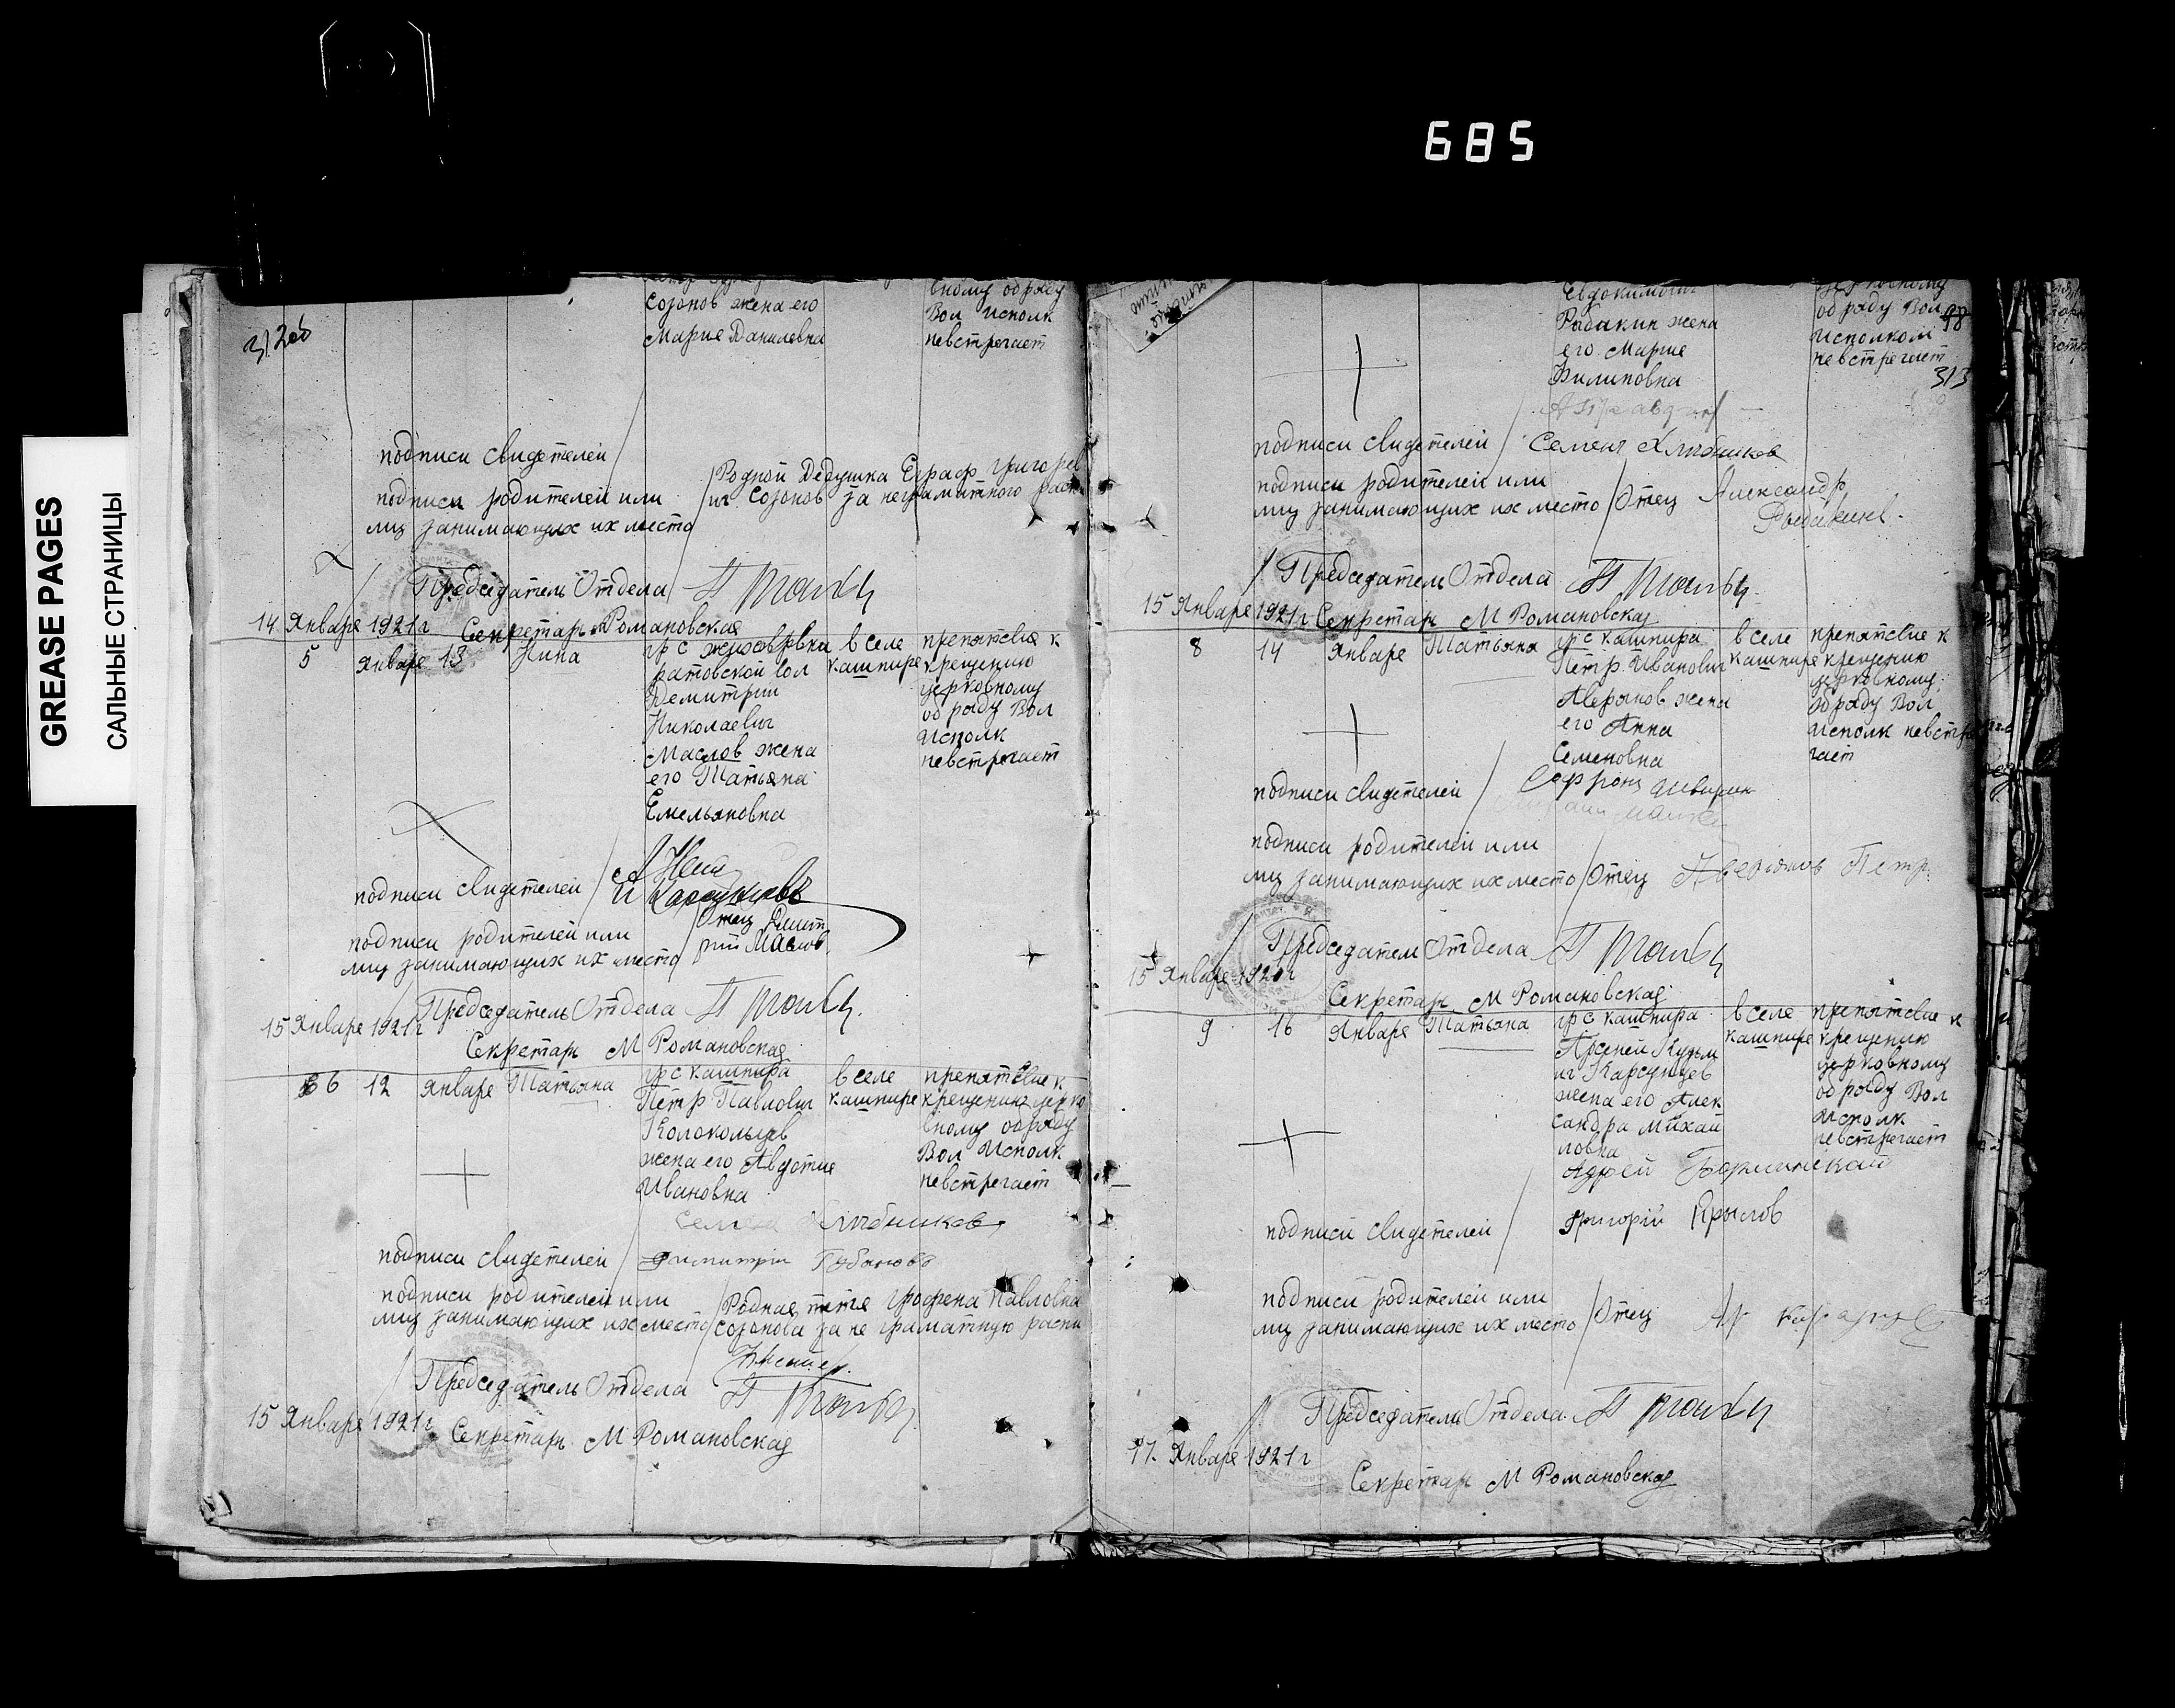 685
GREASE PAGES
САЛЬНЫЕ СТРАНИЦЫ
312об
Созонов жена его
Марие Даниловна
вному обряду
Вол Исполк
невстречает
подписи свидетелей /
подписи родителей или
лиц занимающих их место
/ Родной Дедушка Григорев
ич Созонов за неграмотного
Председатель Отдела
14 Январе 1921 г
Секретарь Романовская
5 Январе 13 Нина
гр с
ратовской вол
Демитрии
Николаевич
Маслов жена
его Татьяна
Емельяновна
в селе
кашпире
препятствие к
крещению
церковному
обряду Вол
Исполк
невстречает
подписи свидетелей /
подписи родителей или
лиц занимающих их место
/ Отец Дмит
рий Маслов
Председатель Отдела
15 Январе 1921 г
Секретарь М Романовская
6 12 Январе Татьяна
гр с кашпира
Петр Павлович
Колокольцев
жена его
Ивановна
в селе
кашпире
препятствие к
крещению церко
вному обряду
Вол Исполк
невстречает
подписи свидетелей /
подписи родителей или
лиц занимающих их место
/ Родная тетя Грофена Павловна
Созонова за не граматную распи
Председатель Отдела
15 Январе 1921 г
Секретарь М Романовская
98
313
Евдокимович
Рыбакин жена
его Марие
Филиповна
обряду Вол
Исполком
невстречает
подписи свидетелей / Семен Хлыбников
подписи родителей или
лиц занимающих их место / Отец Александр
Рыбакин
/ Председатель Отдела
15 Январе 1921 г Секретарь М Романовская
8 14 Январе Татьяна
гр с кашпира
Петр Иванович
Аверянов жена
его Анна
Семеновна
в селе
кашпире
препятствие к
крещению
церковному
обряду Вол
Исполк невстре
чает
подписи свидетелей /
подписи родителей или
лиц занимающих их место / Отец Аверіянов Петр
Председатель Отдела
15 Январе 1921 г
Секретарь М Романовская
9 16 Январе Татьяна
гр с кашпира
Арсений Кузьм
ич Карсунцев
жена его Алек
сандра Михай
ловна
в селе
кашпире
препятствие к
крещению
церковному
обряду Вол
Исполк
невстречает
подписи свидетелей /
Григорій Крылов
подписи родителей или
лиц занимающих их место / Отец
Председатель Отдела
17 Январе 1921 г
Секретарь М Романовская